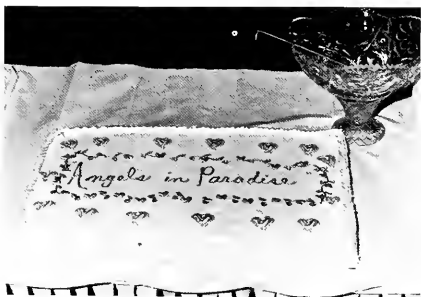 Angels in Paradise